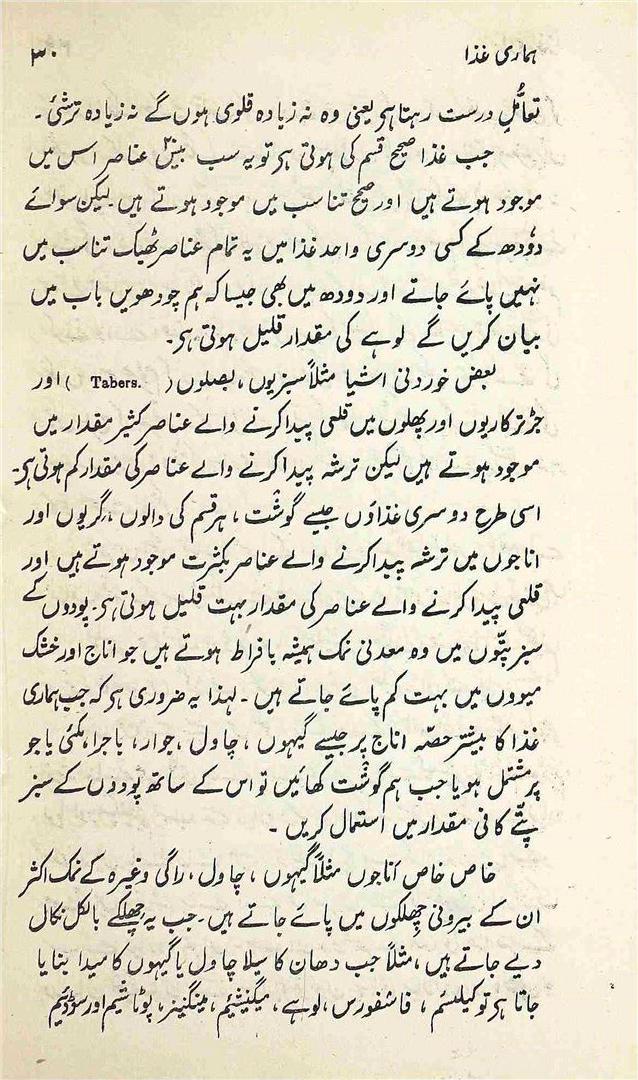 ہماری غذا
۳۰
تعامُلِ درست رہتا ہی یعنی وہ نہ زیادہ قلوی ہوں گے نہ زیادہ ترشئی۔
جب غذا صحیح قسم کی ہوتی ہی تو یہ سب بیسؔ عناصر اس میں
موجود ہوتے ہیں اور صحیح تناسب میں موجود ہوتے ہیں۔لیکن سوائے
دُودھ کے کسی دوسری واحد غذا میں یہ تمام عناصر ٹھیک تناسب میں
نہیں پائے جاتے اور دودھ میں بھی جیسا کہ ہم چودھویں باب میں
بیان کریں گے لوہے کی مقدار قلیل ہوتی ہی۔
بعض خوردنی اشیا مثلاً سبزیوں، بصلوں (Tabers.) اور
جڑ ترکاریوں اور پھلوں میں قلعی پیدا کرنے والے عناصر کثیر مقدار میں
موجود ہوتے ہیں لیکن ترشہ پیدا کرنے والے عناصر کی مقدار کم ہوتی ہی۔
اسی طرح دوسری غذاؤں جیسے گوشت، ہر قسم کی دالوں، گریوں اور
اناجوں میں ترشہ پیدا کرنے والے عناصر بکثرت موجود ہوتے ہیں اور
قلعی پیدا کرنے والے عناصر کی مقدار بہت قلیل ہوتی ہی۔ پودوں کے
سبز پتّوں میں وہ معدنی نمک ہمیشہ بافراط ہوتے ہیں جو اناج اور خشک
میووں میں بہت کم پائے جاتے ہیں۔ لہذا یہ ضروری ہی کہ جب ہماری
غذا کا بیشتر حصّہ اناج پر جیسے گیہوں، چاول، جوار، باجرا، مکئی یا جو
پر مشتمل ہو یا جب ہم گوشت کھائیں تو اس کے ساتھ پودوں کے سبز
پتّے کافی مقدار میں استعمال کریں۔
خاص خاص اناجوں مثلاً گیہوں، چاول، راگی وغیرہ کے نمک اکثر
ان کے بیرونی چھلکوں میں پائے جاتے ہیں۔ جب یہ چھلکے بالکل نکال
دیے جاتے ہیں، مثلاً جب دھان کا سیلا چاول یا گیہوں کا میدا بنایا
جاتا ہی تو کیلسئم، فاسفورس، لوہے، میگنیشیم، مینگنیز، پوٹاشیم اور سوڈیم